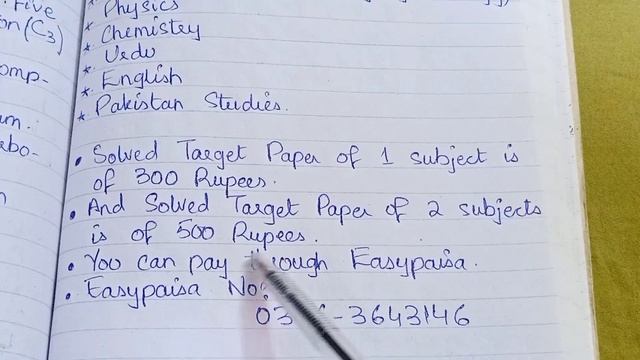 Five
* Physics
on (C3)
* Chemistry
* Urdu
omp-
* English
* Pakistan Studies.
um.
abo-
• Solved Target Paper of 1 subject is
of 300 Rupees.
• And Solved Target Paper of 2 subjects
is of 500 Rupees.
• You can pay through Easypaisa.
• Easypaisa No:
-3643146